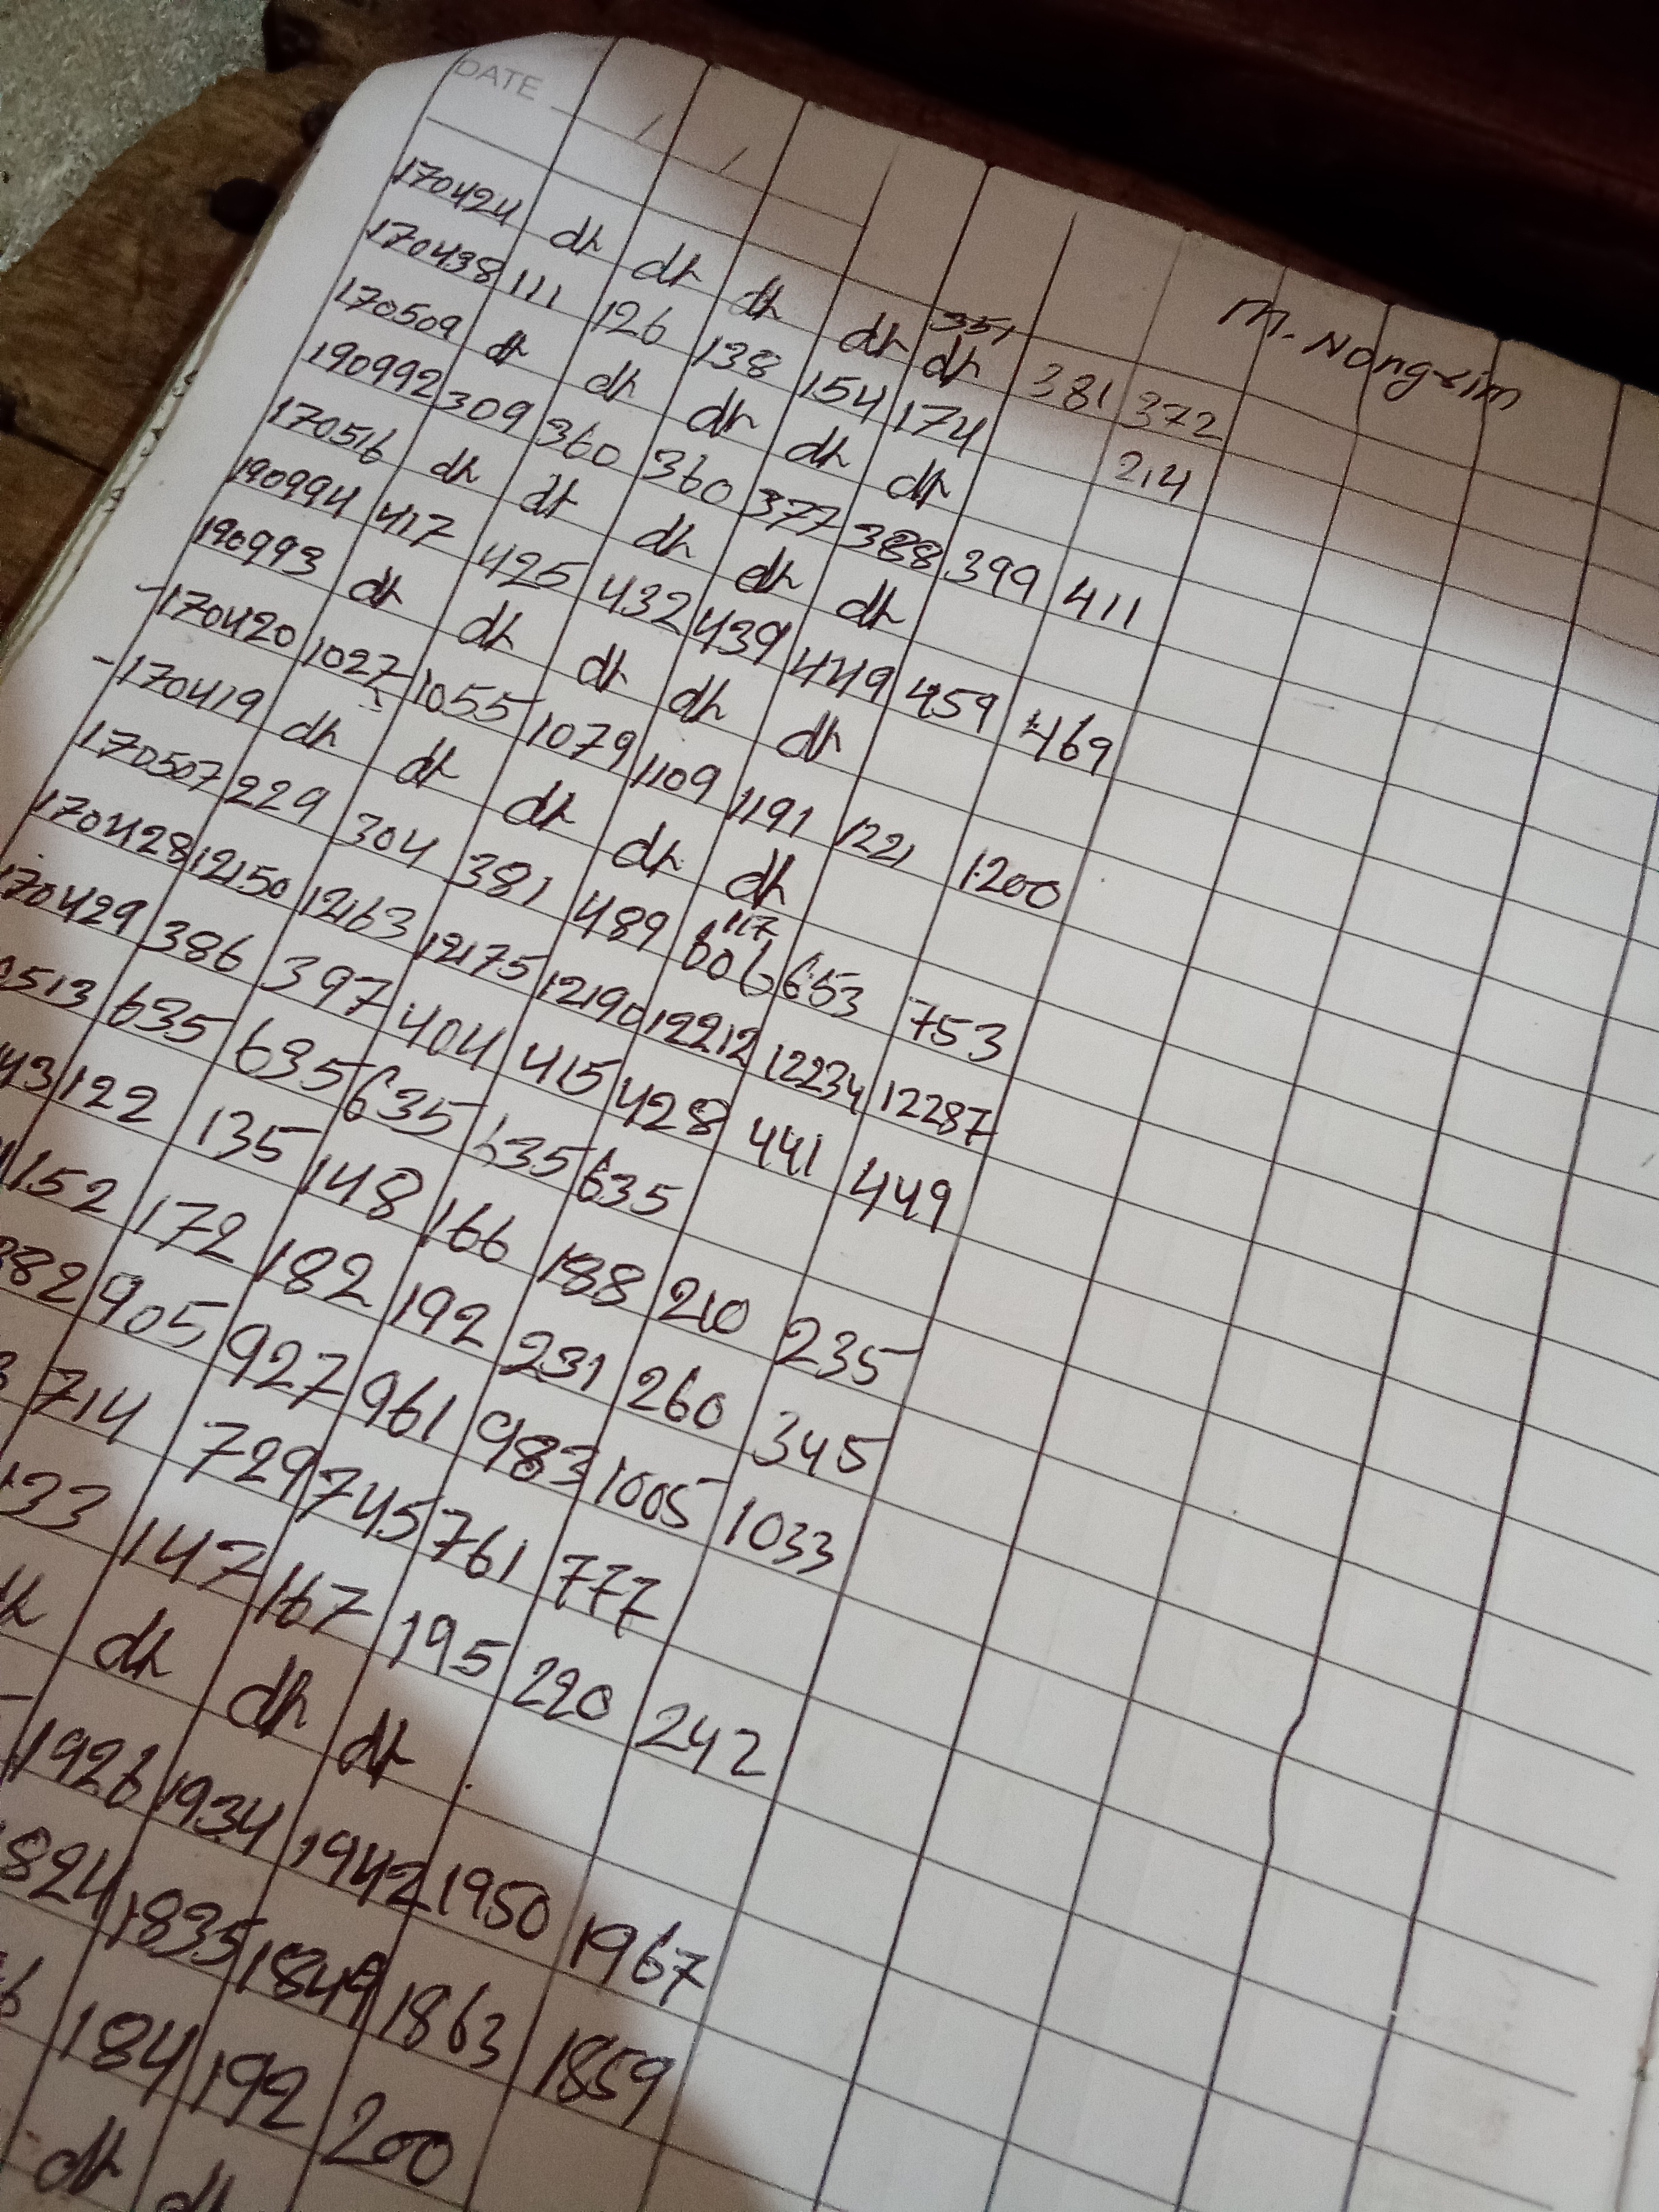 DATE / /
M. Nongrim
351
170424 dh dh dh dh dh 381 372
170438 111 126 138 154 174 214
170509 dh dh dh dh dh
190992 309 360 360 377 388 399 411
170516 dh dh dh dh dh
190994 417 425 432 439 449 459 469
190993 dh dh dh dh dh
-170420 1027 1055 1079 1109 1191 1221 1200
-170419 dh dh dh dh dh
117
170507 229 304 381 489 606 653 753
170428 12150 12163 12175 12190 12212 12234 12287
70429 386 397 404 415 428 441 449
513 635 635 635 635 635
43 122 135 148 166 188 210 235
152 172 182 192 231 260 345
882 905 927 961 983 1005 1033
3 714 729 745 761 777
133 147 167 195 220 242
dh dh dh dh
1926 1934 1942 1950 1967
824 1835 1849 1863 1859
6 184 192 200
dh dh